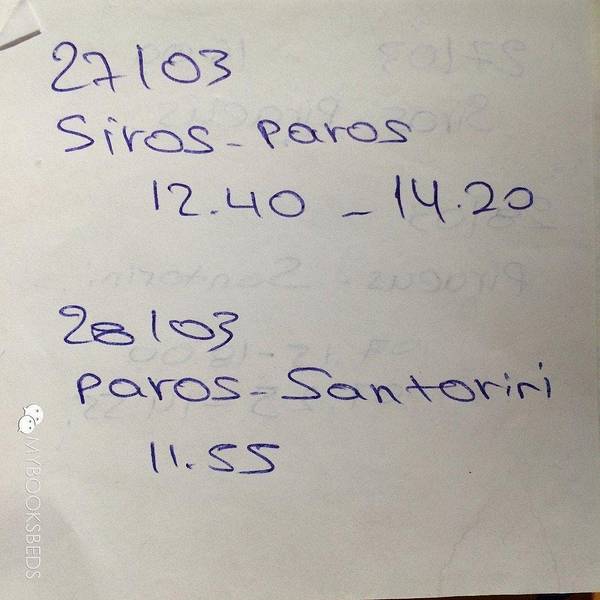 27/03
Siros - paros
12.40 - 14.20
28/03
paros - Santorini
11.55
MYBOOKSBEDS